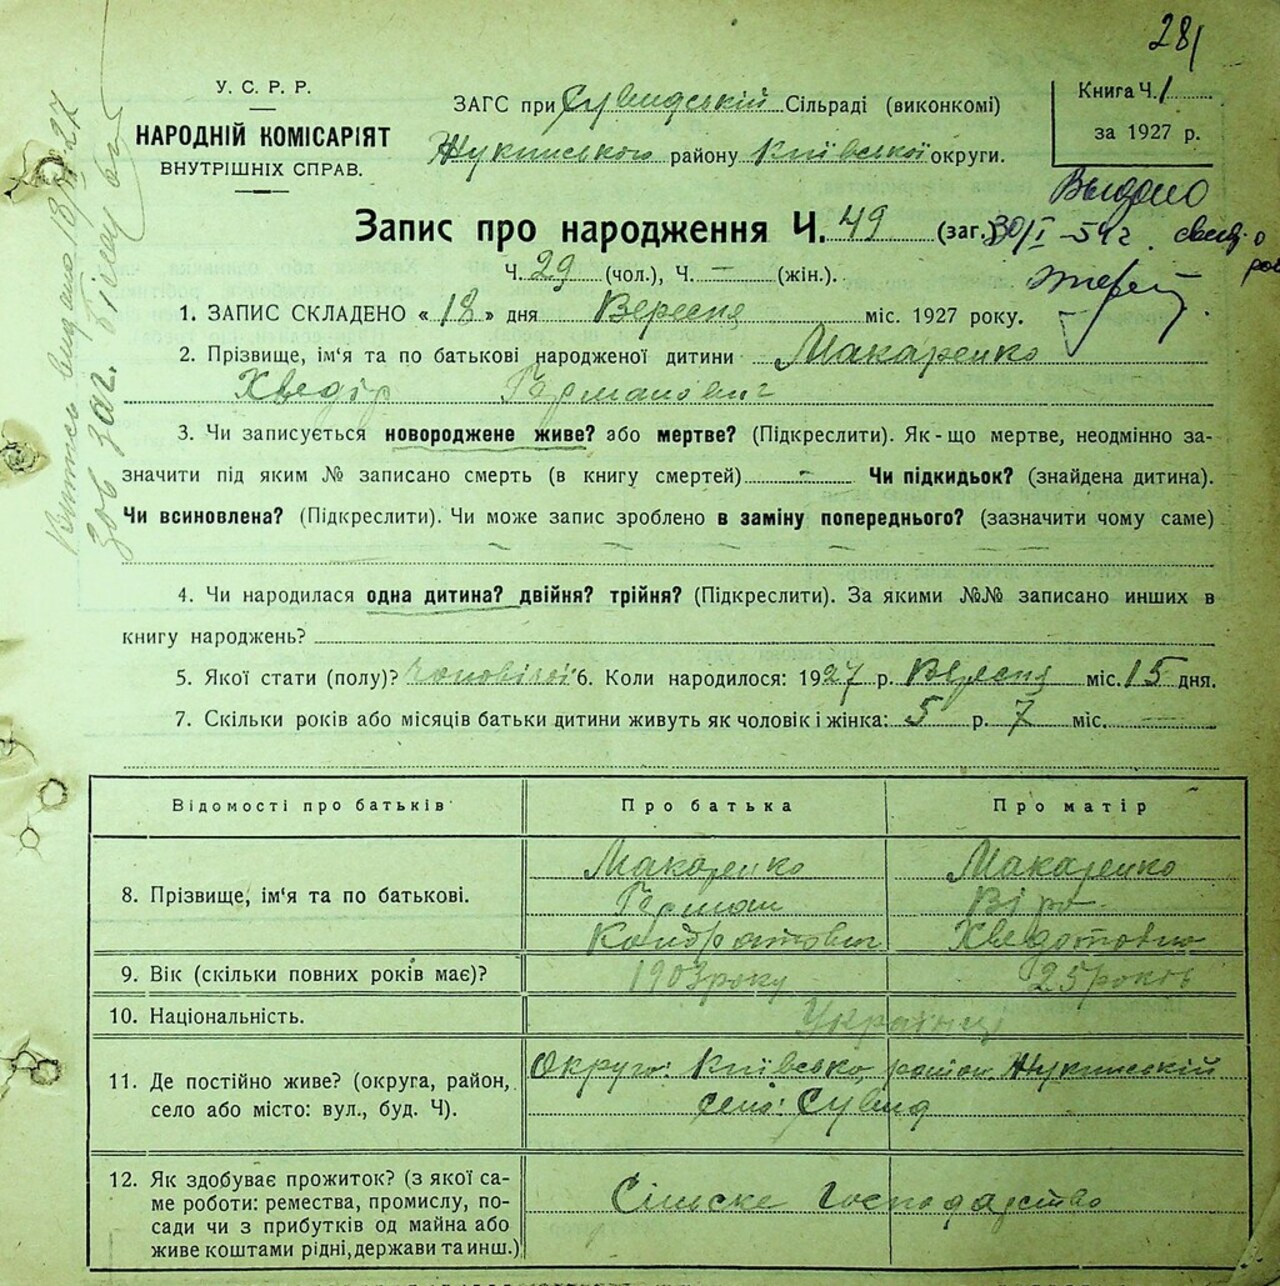 281
У. С. Р. Р.
НАРОДНІЙ КОМІСАРІЯТ
ВНУТРІШНІХ СПРАВ.
ЗАГС при Сувидській Сільраді (виконкомі)
Жукинського району Київської округи.
Книга Ч. 1
за 1927 р.
Выдано
30/I-54 г. свид. о
Запис про народження Ч. 49 (заг.)
Ч. 29 (чол.), Ч. — (жін.).
1. ЗАПИС СКЛАДЕНО « 18 » дня Вересня міс. 1927 року.
2. Прізвище, ім'я та по батькові народженої дитини Макаренко
Хведір Германович
3. Чи записується новороджене живе? або мертве? (Підкреслити). Як-що мертве, неодмінно за-
значити під яким № записано смерть (в книгу смертей) — Чи підкидьок? (знайдена дитина).
Чи всиновлена? (Підкреслити). Чи може запис зроблено в заміну попереднього? (зазначити чому саме)
— — — — — —
4. Чи народилася одна дитина? двійня? трійня? (Підкреслити). За якими №№ записано инших в
книгу народжень?
5. Якої стати (полу)? Чоловічої 6. Коли народилося: 1927 р. Вересня міс. 15 дня.
7. Скільки років або місяців батьки дитини живуть як чоловік і жінка: 5 р. 7 міс. —
Відомості про батьків Про батька Про матір
8. Прізвище, ім'я та по батькові.
Макаренко Макаренко
Герман Віра
Кондратович Хведотовна
9. Вік (скільки повних років має)? 1903 року 25 років
10. Національність. Українці
11. Де постійно живе? (округа, район, село або місто: вул., буд. Ч).
Округа: Київська, район Жукинській
село: Сувид
12. Як здобуває прожиток? (з якої са-
ме роботи: ремества, промислу, по-
сади чи з прибутків од майна або
живе коштами рідні, держави та инш.)
Сільске Господарство